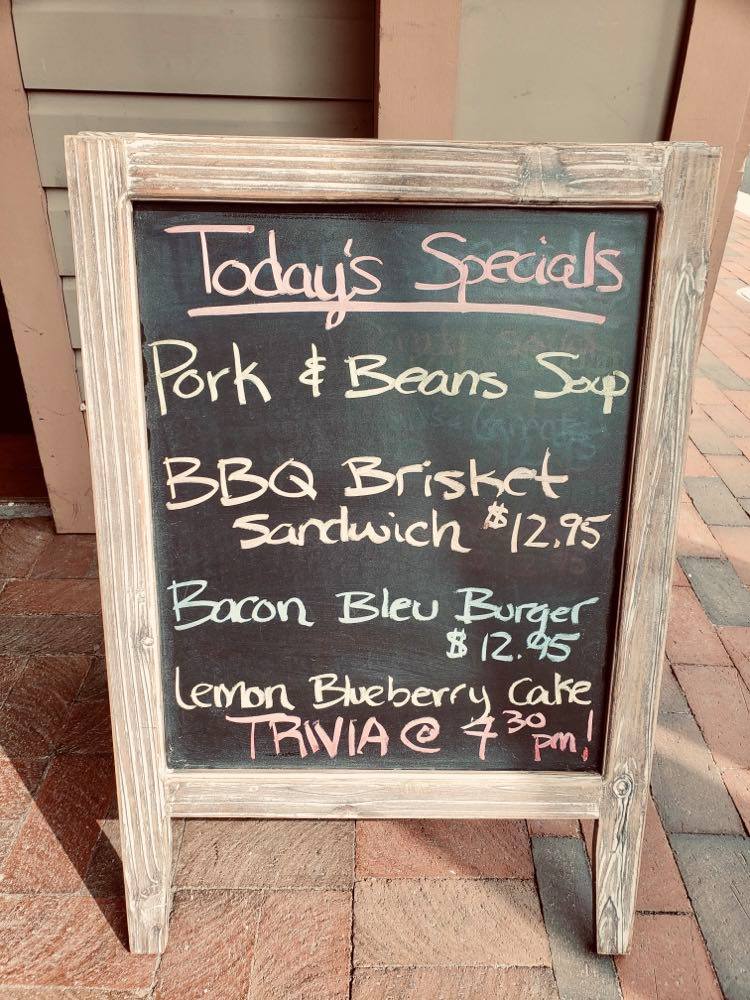 Today's Specials
Pork & Beans Soup
BBQ Brisket
Sandwich $12.95
Bacon Bleu Burger
$12.95
Lemon Blueberry Cake
TRIVIA @ 7 30 pm!